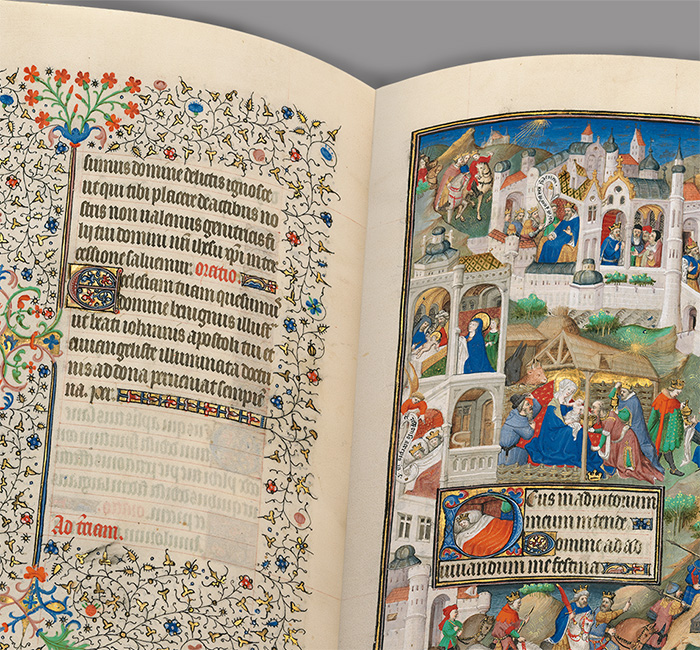 sumus domine delictis ignosce
ut qui tibi placere de actibus no
stris non ualemus genitricis fi
lij tui domini nri ihesu xpi inter
cessione saluemur. oratio.
Ecclesiam tuam quesumus
domine benignus illustr
ut beati iohannis apostoli tui et
euuangeliste illuminata doctri
nis ad dona perueniat sempite
na. per
Ad terciam.
Deus in adiutorium
meum intende
Domine ad ad
iuuandum me festina